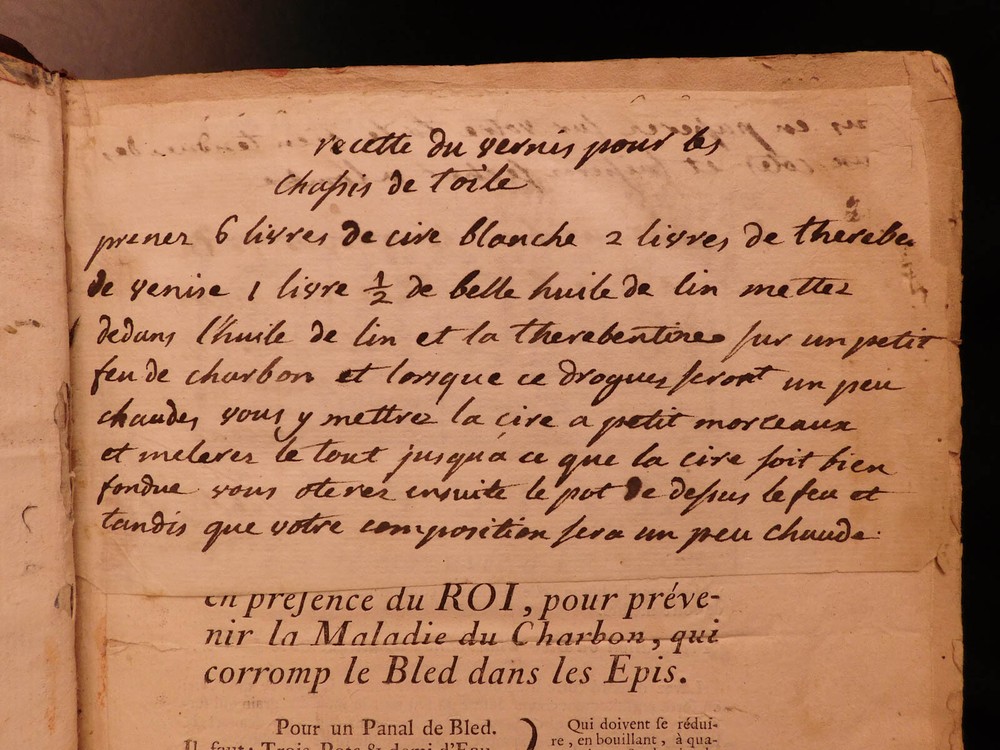 recette du vernis pour les
chassis de toile
prenez 6 livres de cire blanche 2 livres de therebe
de venise 1 livre ½ de belle huile de lin mettez
dedans l'huile de lin et la therebentine sur un petit
feu de charbon et lorsque ce drogues seront un peu
chaudes vous y mettrez la cire a petit morceaux
et melerez le tout jusqu'á ce que la cire soit bien
fondue vous oterez ensuite le pot de dessus le feu et
tandis que votre composition sera un peu chaude
en presence du ROI, pour préve-
nir la Maladie du Charbon, qui
corromp le Bled dans les Epis.
Pour un Panal de Bled.
Il faut: Trois Pots & demi d'Eau
Qui doivent se rédui-
re, en bouillant, à qua-